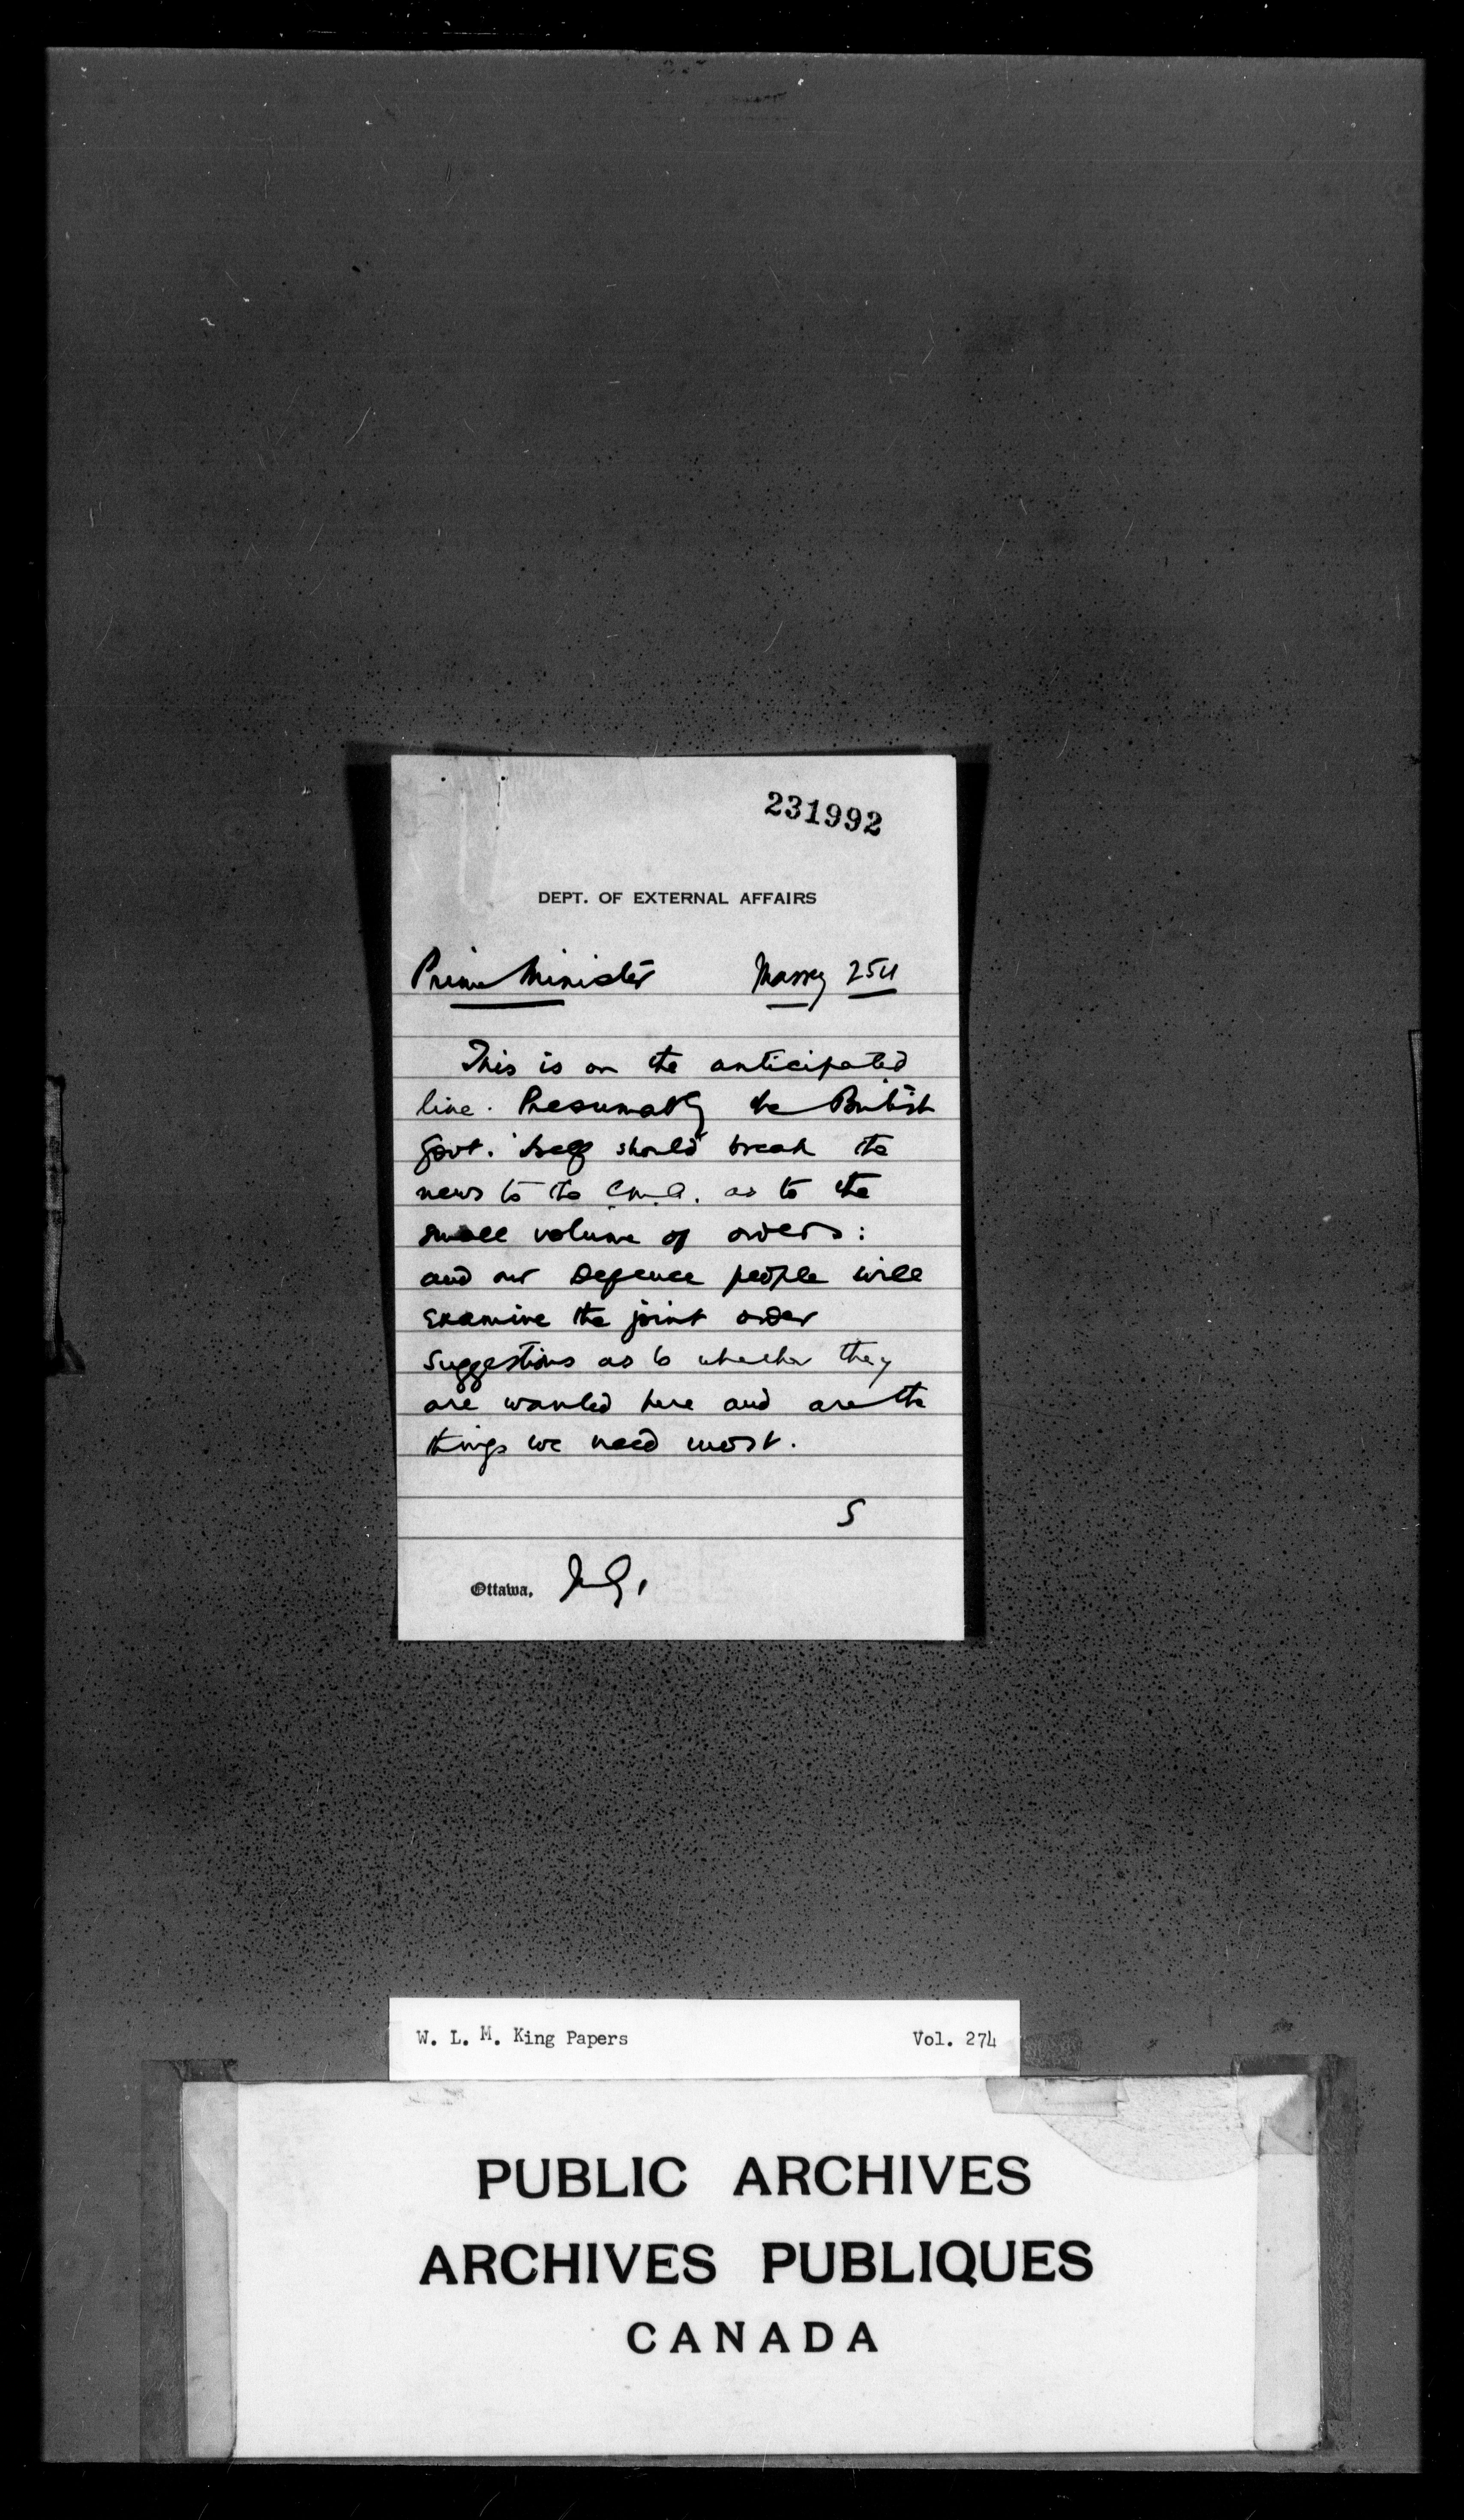 231992
DEPT. OF EXTERNAL AFFAIRS
Prime Minister Massey 254
This is on the anticipated
line. Presumably the British
Govt. itself should break the
news to the C.M.A. as to the
small volume of orders:
and our Defence people will
examine the joint order
suggestions as to whether they
are wanted here and are the
things we need most.
S
Ottawa,
W. L. M. King Papers Vol. 274
PUBLIC ARCHIVES
ARCHIVES PUBLIQUES
CANADA